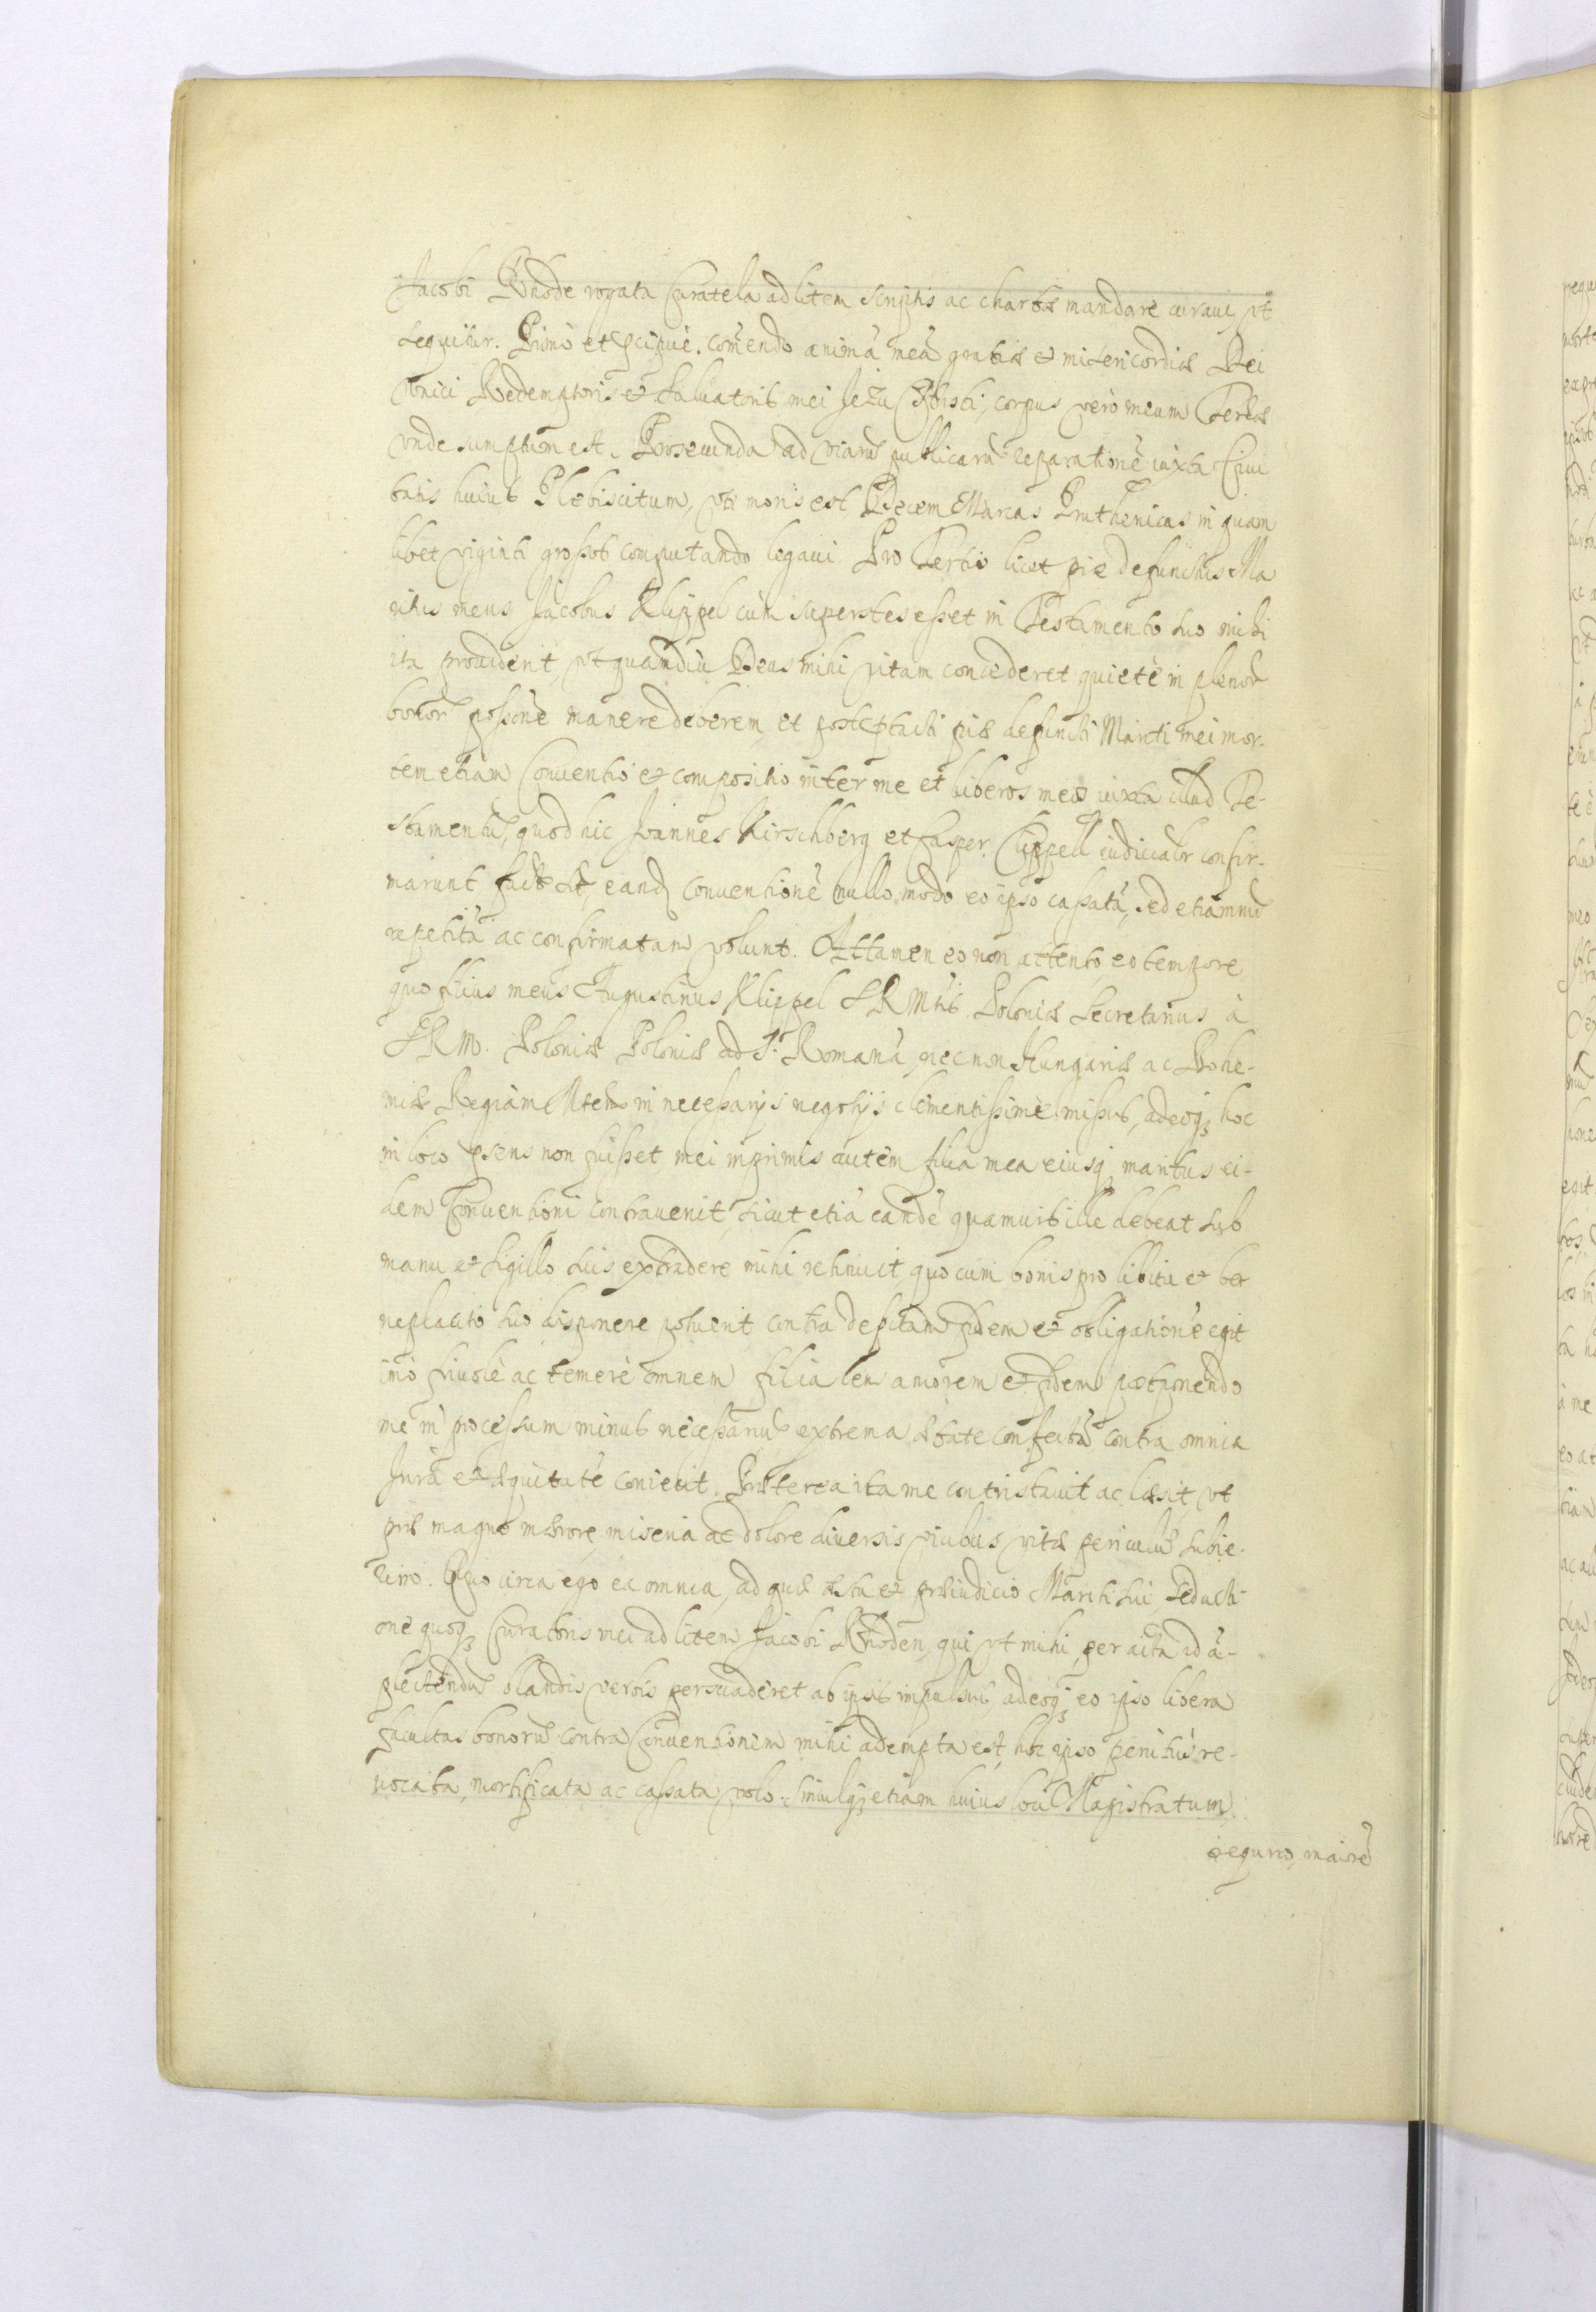 Jacobi Rhode rogata Curatela ad litem scriptis ac chartis mandare curaui vt
sequitur. Primò et pcipuè. comendo animã meã gratiæ et misericordiæ Dei
vnici Redemptoris et Saluatoris mei Jesu Christi, corpus verò meum Terræ
vnde sumptum est. Pro secunda ad viarũ publicarũ reparationẽ iuxta Ciui
tatis huius Plebiscitum, vti moris est Decem Marcas Pruthenicas in quam
libet viginti grossos computando legaui. Pro Tertio licet pie defunctus Ma
ritus meus Jacobus Klippel cùm superstes esset in Testamento suo mihi
ita prouiderit, vt quandiù Deus mihi vitam concederet quietè in plenor
bonor possõne manere deberem, et post ptacti piè defuncti Mariti mei mor-
tem etiam Conuentio et compositio inter me et liberos meos iuxta illud Te-
stamentũ, quod hic Joannes Hirschberg et Casper Clippell iudicialr confir-
marunt facta sit, eand conuentionẽ nullo modo eo ipso cassatã, sed etiamnũ
repetitã ac confirmatam volunt. Attamen eo non attento eo tempore
quo filius meus Augustinus Klippel S R Mtis Poloniæ Secretarius à
S R M. Poloniæ Poloniæ ad S. Romanã, nec non Hungariæ ac Bohe-
miæ Regiam Mtem in necessarijs negotijs clementissimè missus, adeoq hoc
in loco psens non fuisset mei inprimis autem filia mea eiusq maritus ei-
dem Conuentioni contrauenit, sicut etiã eandẽ quamuis ille debeat sub
manu et sigillo suis extradere mihi retinuit, quo cum bonis pro libitu et be
neplacito suo disponere potuerit contra debitam fidem et obligationẽ egit
imò friuolè ac temerè omnem filialem amorem et fidem postponendo
me in processum minus necessariũ extrema ætate confectã contra omnia
Jura et æquitatẽ coniecit. Præterea ita me contristauit ac læsit, vt
præ magno mærore, miseria ac dolore diuersis vicibus vitæ periculũ subie-
rim. Quo circa ego ea omnia, ad quæ astu et præiudicio Mariti sui, seducti
one quoq Curatoris mei ad litem Jacobi Rhoden, qui vt mihi, per acta id ã-
plectendũ blandis verbis persuaderet ab ipsis impulsus, adeoq eo ipso libera
facultas bonorũ contra Conuentionem mihi adempta est, hoc ipso penitùs re-
uocata, mortificata ac cassata volo. Simulq etiam huius loci Magistratum
requiro, maiorẽ